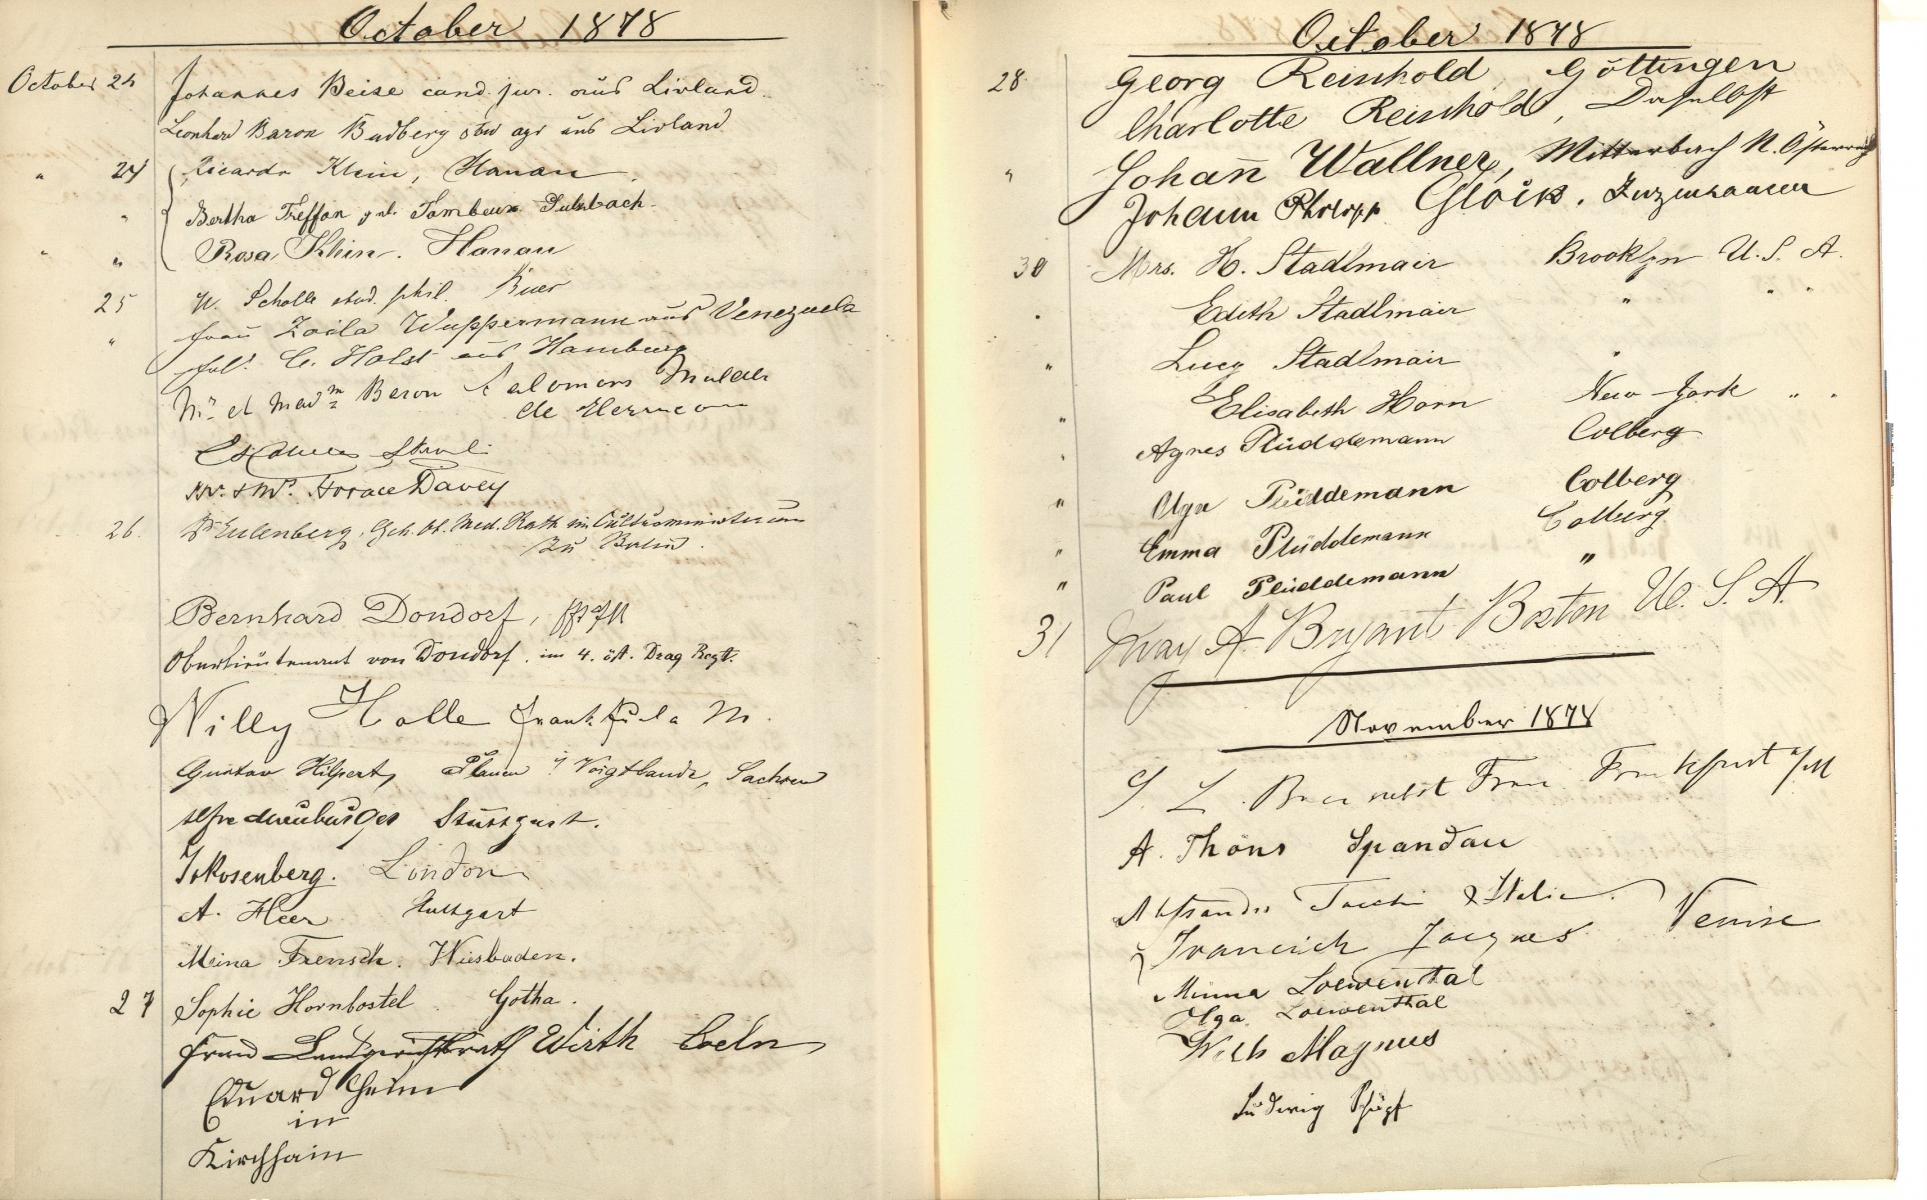 October 1878
October 24 Johannes Beise cand. jur. aus Livland.
Leonhard Baron Budberg aus Livland
" 24 Ricardo Klein, Hanau
" Bertha Treffon Sulzbach.
" " Rosa Klein. Hanau
25 W. Scholle stud. phil. Buer
" Frau Zoila Wuppermann aus Venezuela
C. Holst aus Hamburg
Mr et Madme Baron
de
Mr. & Mrs. Horace Davey
26. Dr Eulenberg, Geh. Ob. Med. Rath im Cultusministerium
zu Berlin.
Bernhard Dondorf,
Oberlieutenant von Dondorf. im 4. öst. Drag Regt.
Willy Halle Frankfu a M.
Gustav Hilpert, Plauen i/ Voigtlande, Sachsen
Stuttgart.
Rosenberg. London
A. Heer Stuttgart
Meina Frensch. Wiesbaden.
27 Sophie Hornbostel Gotha.
Frau Landgerichtsrath Wirth Coeln
Eduard Heim
in
Kirchhain
October 1878
28. Georg Reinhold, Göttingen
Charlotte Reinhold, Daselbst
" Johann Wallner, Mitterbach N. Österreich
Johann Philipp Glock.
30 Mrs. H. Stadlmair Brooklyn U. S. A.
" Edith Stadlmair " " "
" Lucy Stadlmair "
" Elisabeth Horn New-York " "
" Agnes Plüddemann Colberg
" Olga Plüddemann Colberg
" Emma Plüddemann Colberg
" Paul Plüddemann "
31 A. Bryant Boston U. S. A.
November 1878
S. L. nebst Frau Frankfurt a/M
A. Thöns Spandau
Italie.
Jacques Venise
Minna Loewenthal
Olga Loewenthal
Wilh Magnus
Ludwig